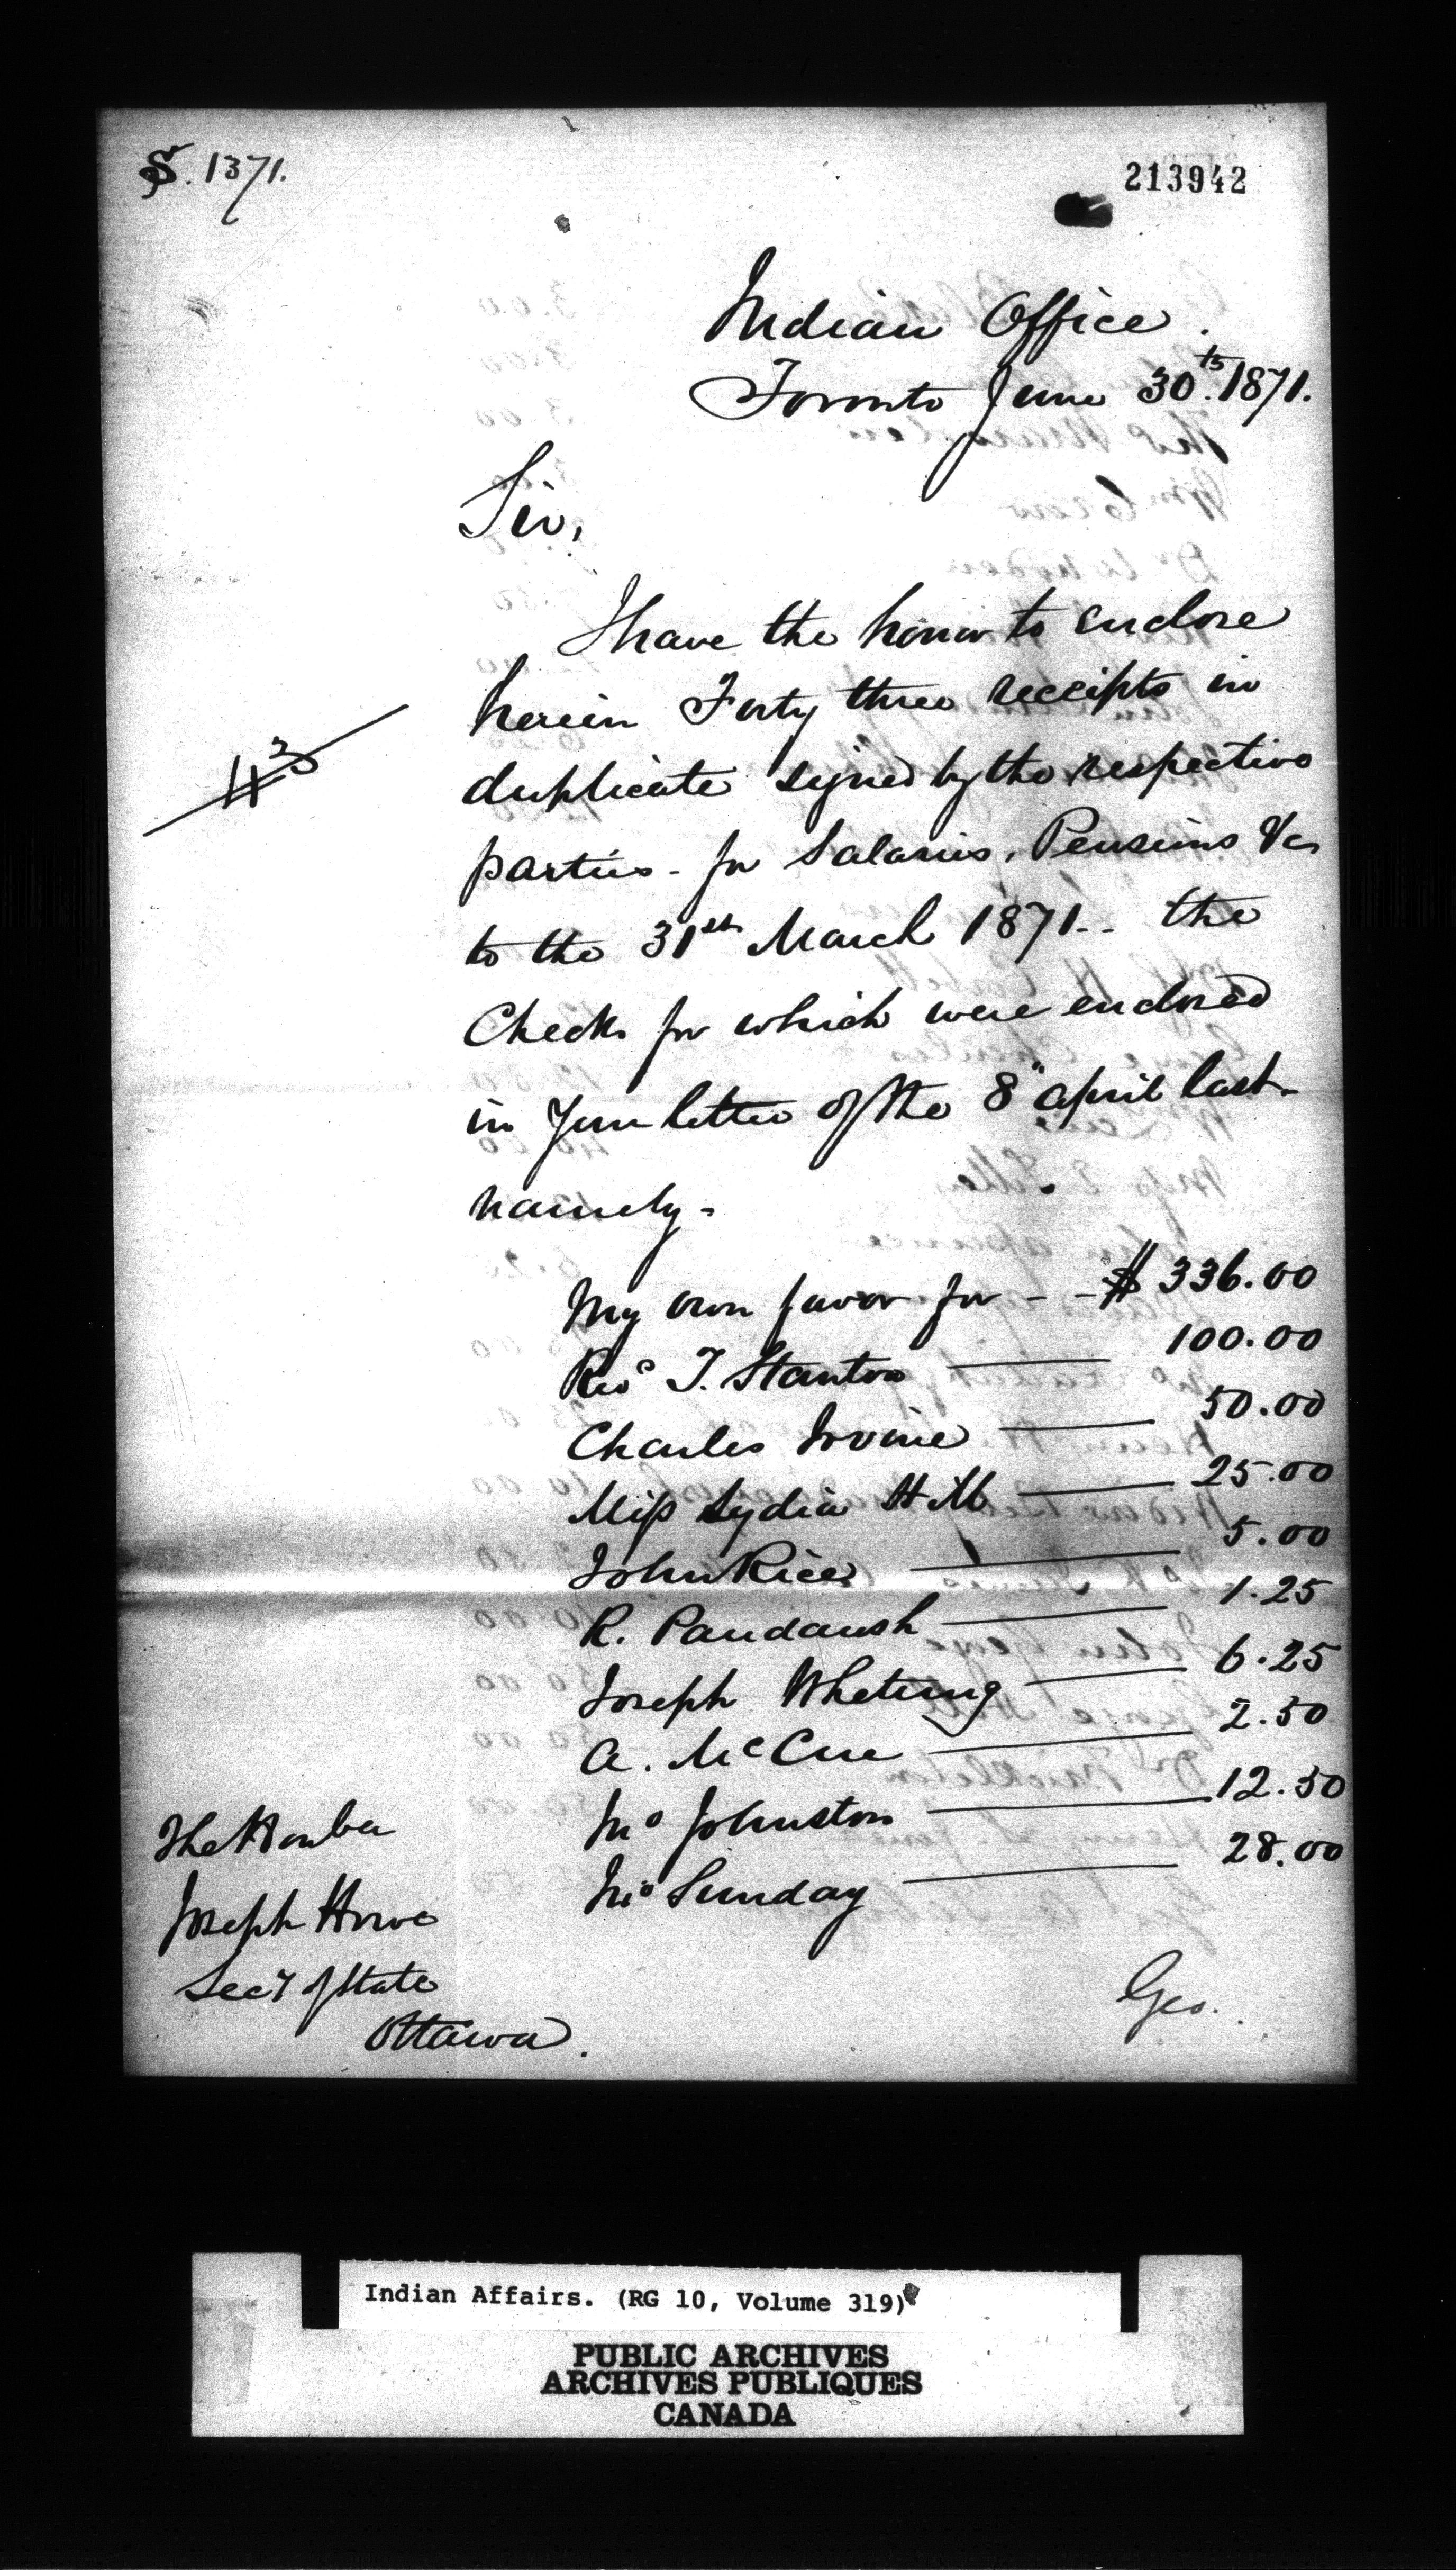 S. 1371.
213942
Indian Office.
Toronto June 30th. 1871.
Sir,
I have the honor to enclose
herein Forty three receipts in
43
duplicate signed by the respective
parties - for Salaries, Pensions &c
to the 31st March 1871 - - the
Checks for which were enclosed
in your letter of the 8" April last -
namely -
My own favor for - - $ 336.00
Revd T. Stanton 100.00
Charles Irvine 50.00
Miss Lydia Hill 25.00
John Rice 5.00
R. Paudaush 1.25
Joseph Whetung 6.25
A. McCue 2.50
Jno Johnston 12.50
Jno Sunday 28.00
The Honble
Joseph Howe
Secy of State
Ottawa.
Geo.
Indian Affairs. (RG 10, Volume 319)
PUBLIC ARCHIVES
ARCHIVES PUBLIQUES
CANADA